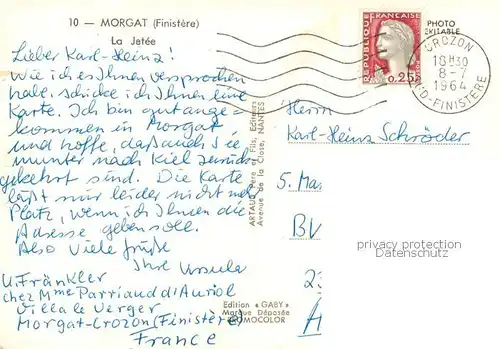 10 — MORGAT (Finistère)
La Jetée
PHOTO
VÉRITABLE
RÉPUBLIQUE FRANÇAISE
0,25
CROZON
18H30
8-7
1964
FINISTERE
Lieber Karl-Heinz!
Wie ich es Ihnen versprochen
habe, schicke ich Ihnen eine
Karte. Ich bin gut ange=
kommen in Morgat,
und hoffe, daß auch Sie
munter nach Kiel zurück
gekehrt sind. Die Karte
läßt nur leider nicht mehr
Platz, wenn ich Ihnen die
Adresse geben soll.
Also Viele Grüße
Ihre Ursula
U. Fränkler
chez Mme Parriaud d'Auriol
Villa le Verger
Morgat-Crozon (Finistère)
France
ARTAUD Père et Fils, Éditeurs
Avenue de la Close, NANTES
Edition «GABY»
Marque Déposée
Herrn
Karl-Heinz Schröder
5. Mas
BV
23
privacy protection
Datenschutz